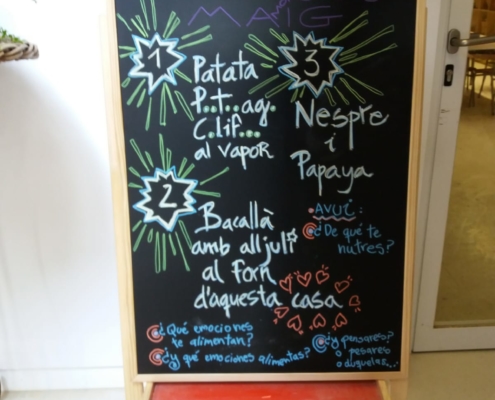 MAIG
1
Patata
P..t..ag.
C.lif...
al vapor
2
Bacallà
amb all juli
al forn
d'aquesta casa
3
Nespre
i
Papaya
AVUI:
¿De què te
nutres?
¿Qué emociones
te alimentan?
¿y qué emociones alimentas?
¿y pensares?
o pesares
o duquelas...